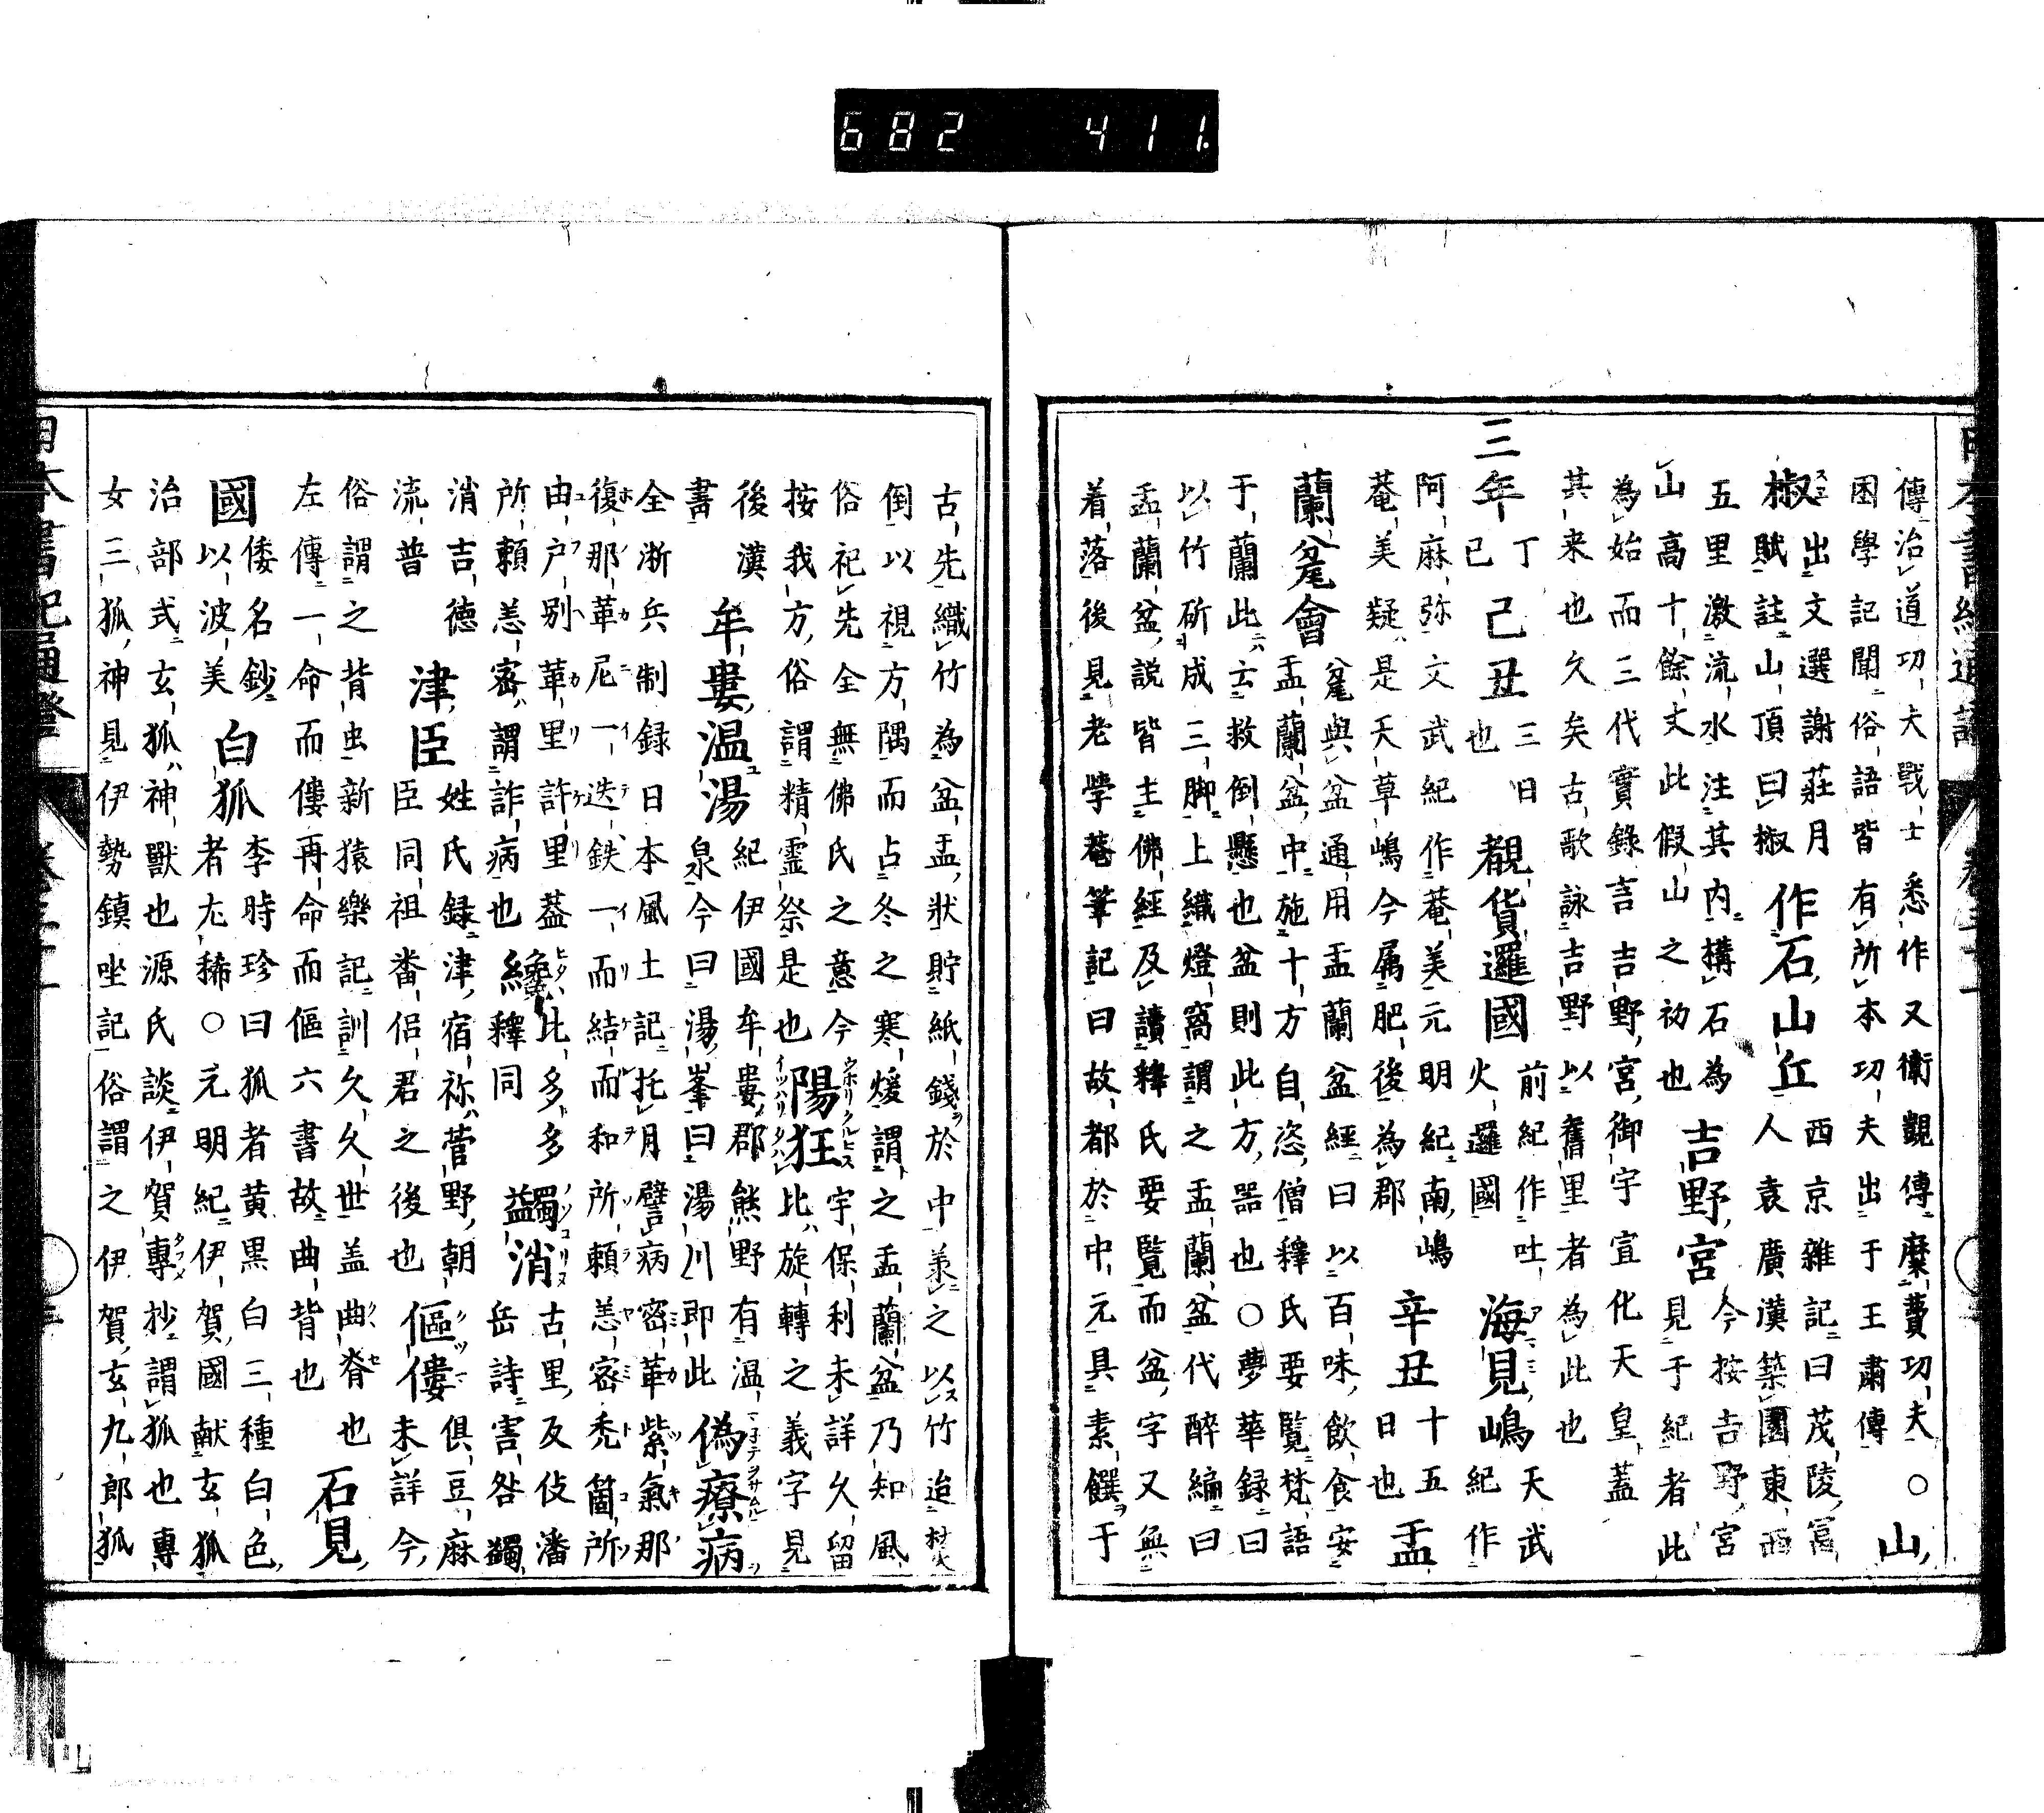 682 411.
傳治道功夫戰士悉作又衛覬傳糜費功夫○山
困學記聞俗語皆有所本功夫出于王肅傳
椒出文選謝莊月賦註山頂曰椒作石山丘西京雜記曰茂陵富人袁廣漢築園東西
五里激流水注其内構石為山高十餘丈此假山之初也吉野宮今按吉野宮見于紀者此
為始而三代實錄吉吉野宮御宇宣化天皇蓋
其来也久矣古歌詠吉野以舊里者為此也
三年丁己已丑三日也覩貨邏國前紀作吐火邏國海見嶋天武紀作
阿麻弥文武紀作菴美元明紀南嶋
菴美疑是天草嶋今屬肥後為郡辛丑十五日也盂
蘭盆會盆與盆通用盂蘭盆經曰以百味飲食安盂蘭盆中施十方自恣僧釋氏要覧梵語
于蘭此云救倒懸也盆則此方器也○夢華録曰
以竹斫成三脚上織燈窩謂之盂蘭盆代醉編曰
盂蘭盆説皆主佛經及讀釋氏要覧而盆字又無
着落後見老學菴筆記曰故都於中元具素饌于
古先織竹為盆盂狀貯紙錢於中羕之以竹迨焚
倒以視方隅而占冬之寒煖謂之盂蘭盆乃知風
俗祀先全無佛氏之意今陽狂宇保利未詳久留比旋轉之義字見
按我方俗謂精霊祭是也
後漢書牟婁温湯紀伊國牟婁郡熊野有温泉今曰湯峯曰湯川即此偽療病
全淅兵制録日本風土記托月譬病密革紫氣那
復那革尼一迭鉄一而結而和所頼恙密禿箇所
由户别革里許里蓋纔比多多蠲消古里反伎潘岳詩害咎蠲
所頼恙密謂詐病也釋同益
消吉徳津臣姓氏録津宿祢菅野朝臣同祖番侶君之後也傴僂倶豆麻未詳今
流普
俗謂之背虫新猿樂記訓久久世盖曲脊也石見
左傳一命而僂再命而傴六書故曲背也
國倭名鈔以波美白狐李時珍曰狐者黄黒白三種白色者尢稀○元明紀伊賀國献玄狐
治部式玄狐神獸也源氏談伊賀專抄謂狐也專
女三狐神見伊勢鎮坐記俗謂之伊賀玄九郎狐